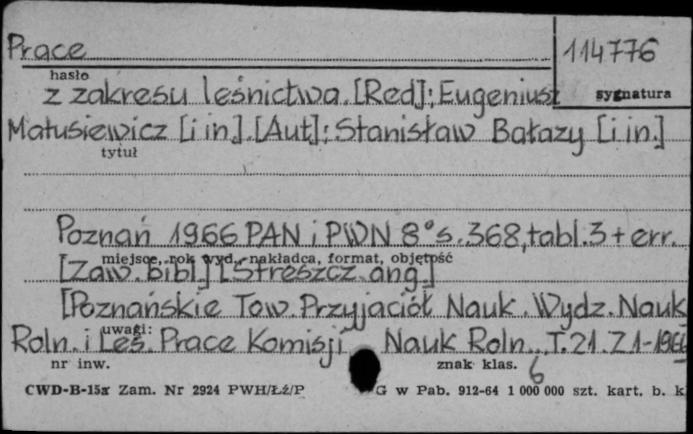 Prace
114776
hasło
sygnatura
z zakresu leśnictwa. [Red]: Eugeniusz
Matusiewicz [i in]. [Aut]: Stanisław Bałazy [i in.]
tytuł
Poznań 1966 PAN i PWN 8° s. 368, tabl. 3 + err.
miejsce, rok wyd., nakładca, format, objętość
[Zaw. bibl.] [Streszcz. ang.]
[Poznańskie Tow. Przyjaciół Nauk. Wydz. Nauk
uwagi:
Roln. i Leś. Prace Komisji Nauk Roln... T. 21. Z 1-1966
nr inw.
znak klas.
6
CWD-B-15a Zam. Nr 2924 PWH/Łź/P
G w Pab. 912-64 1 000 000 szt. kart. b. k